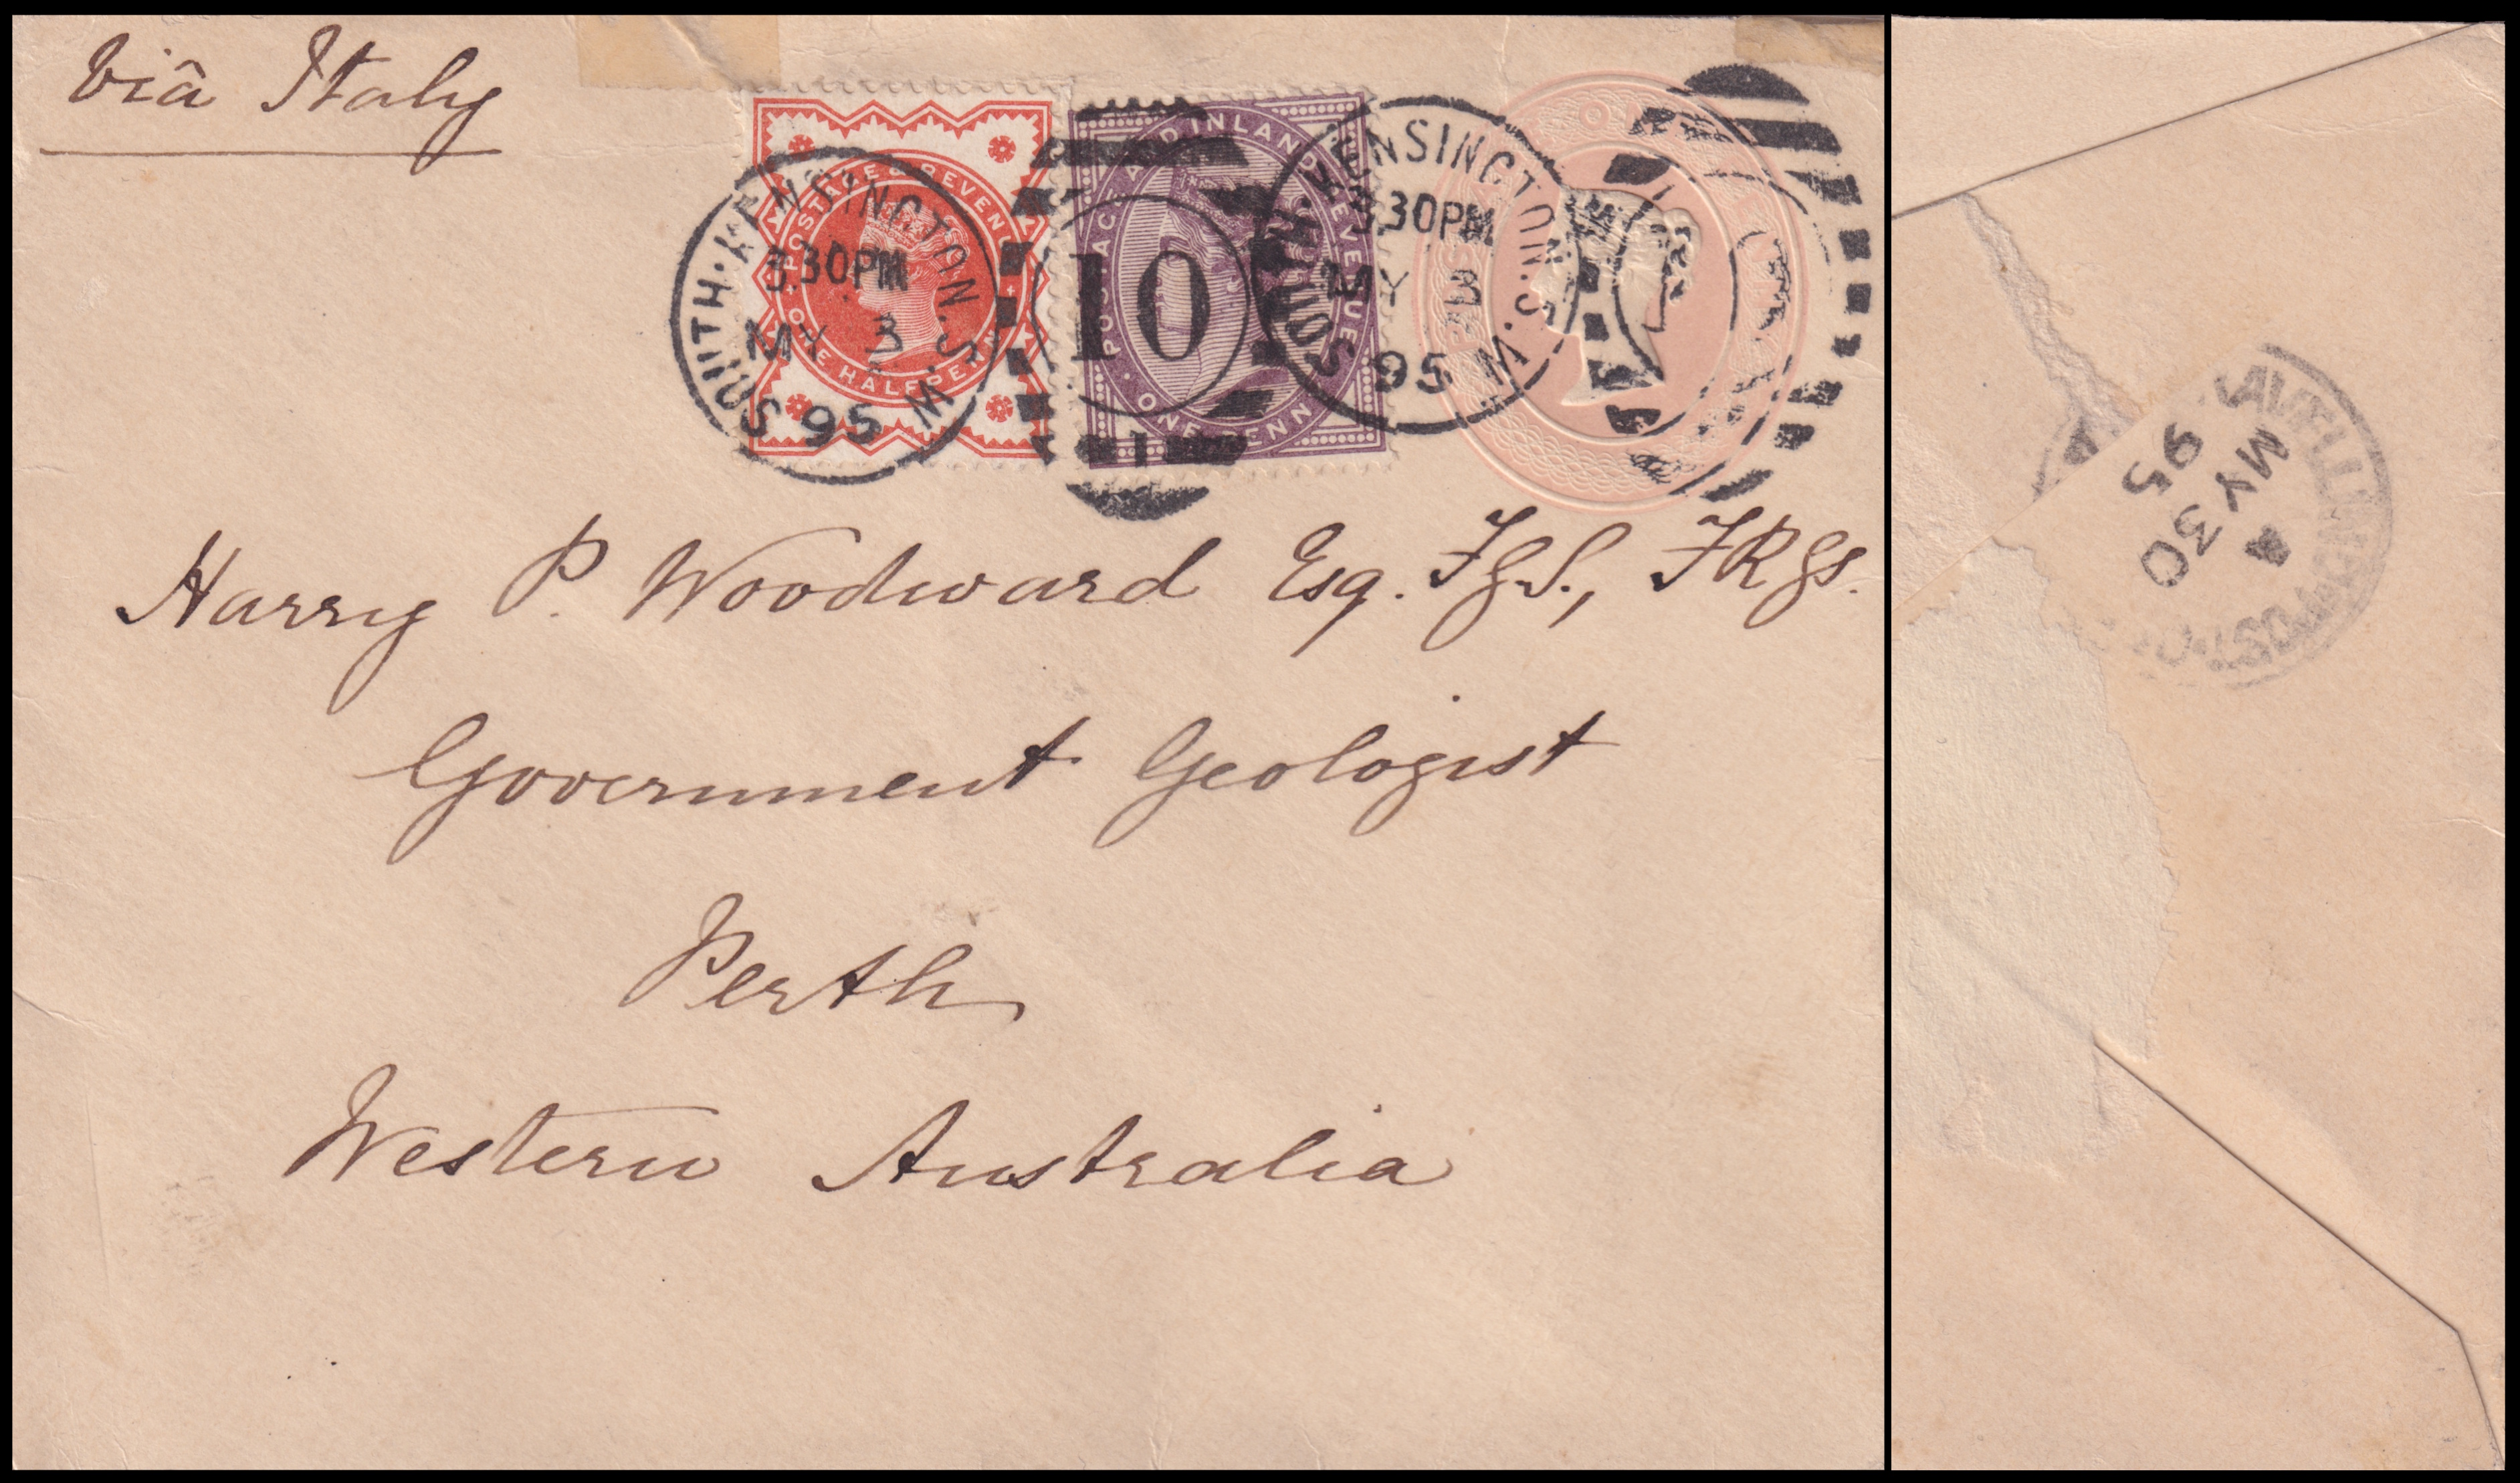 Viâ Italy
POSTAGE & REVENUE
ONE HALFPENNY
POSTAGE AND INLAND REVENUE
ONE PENNY
SOUTH·KENSINGTON. S. W.
3 30PM
MY 3
95
10
1
SOUTH·KENSINGTON. S. W.
3 30PM
MY 3
95
Harry P. Woodward Esq. F.G.S., F.R.G.S.
Government Geologist
Perth
Western Australia
A
MY 30
95